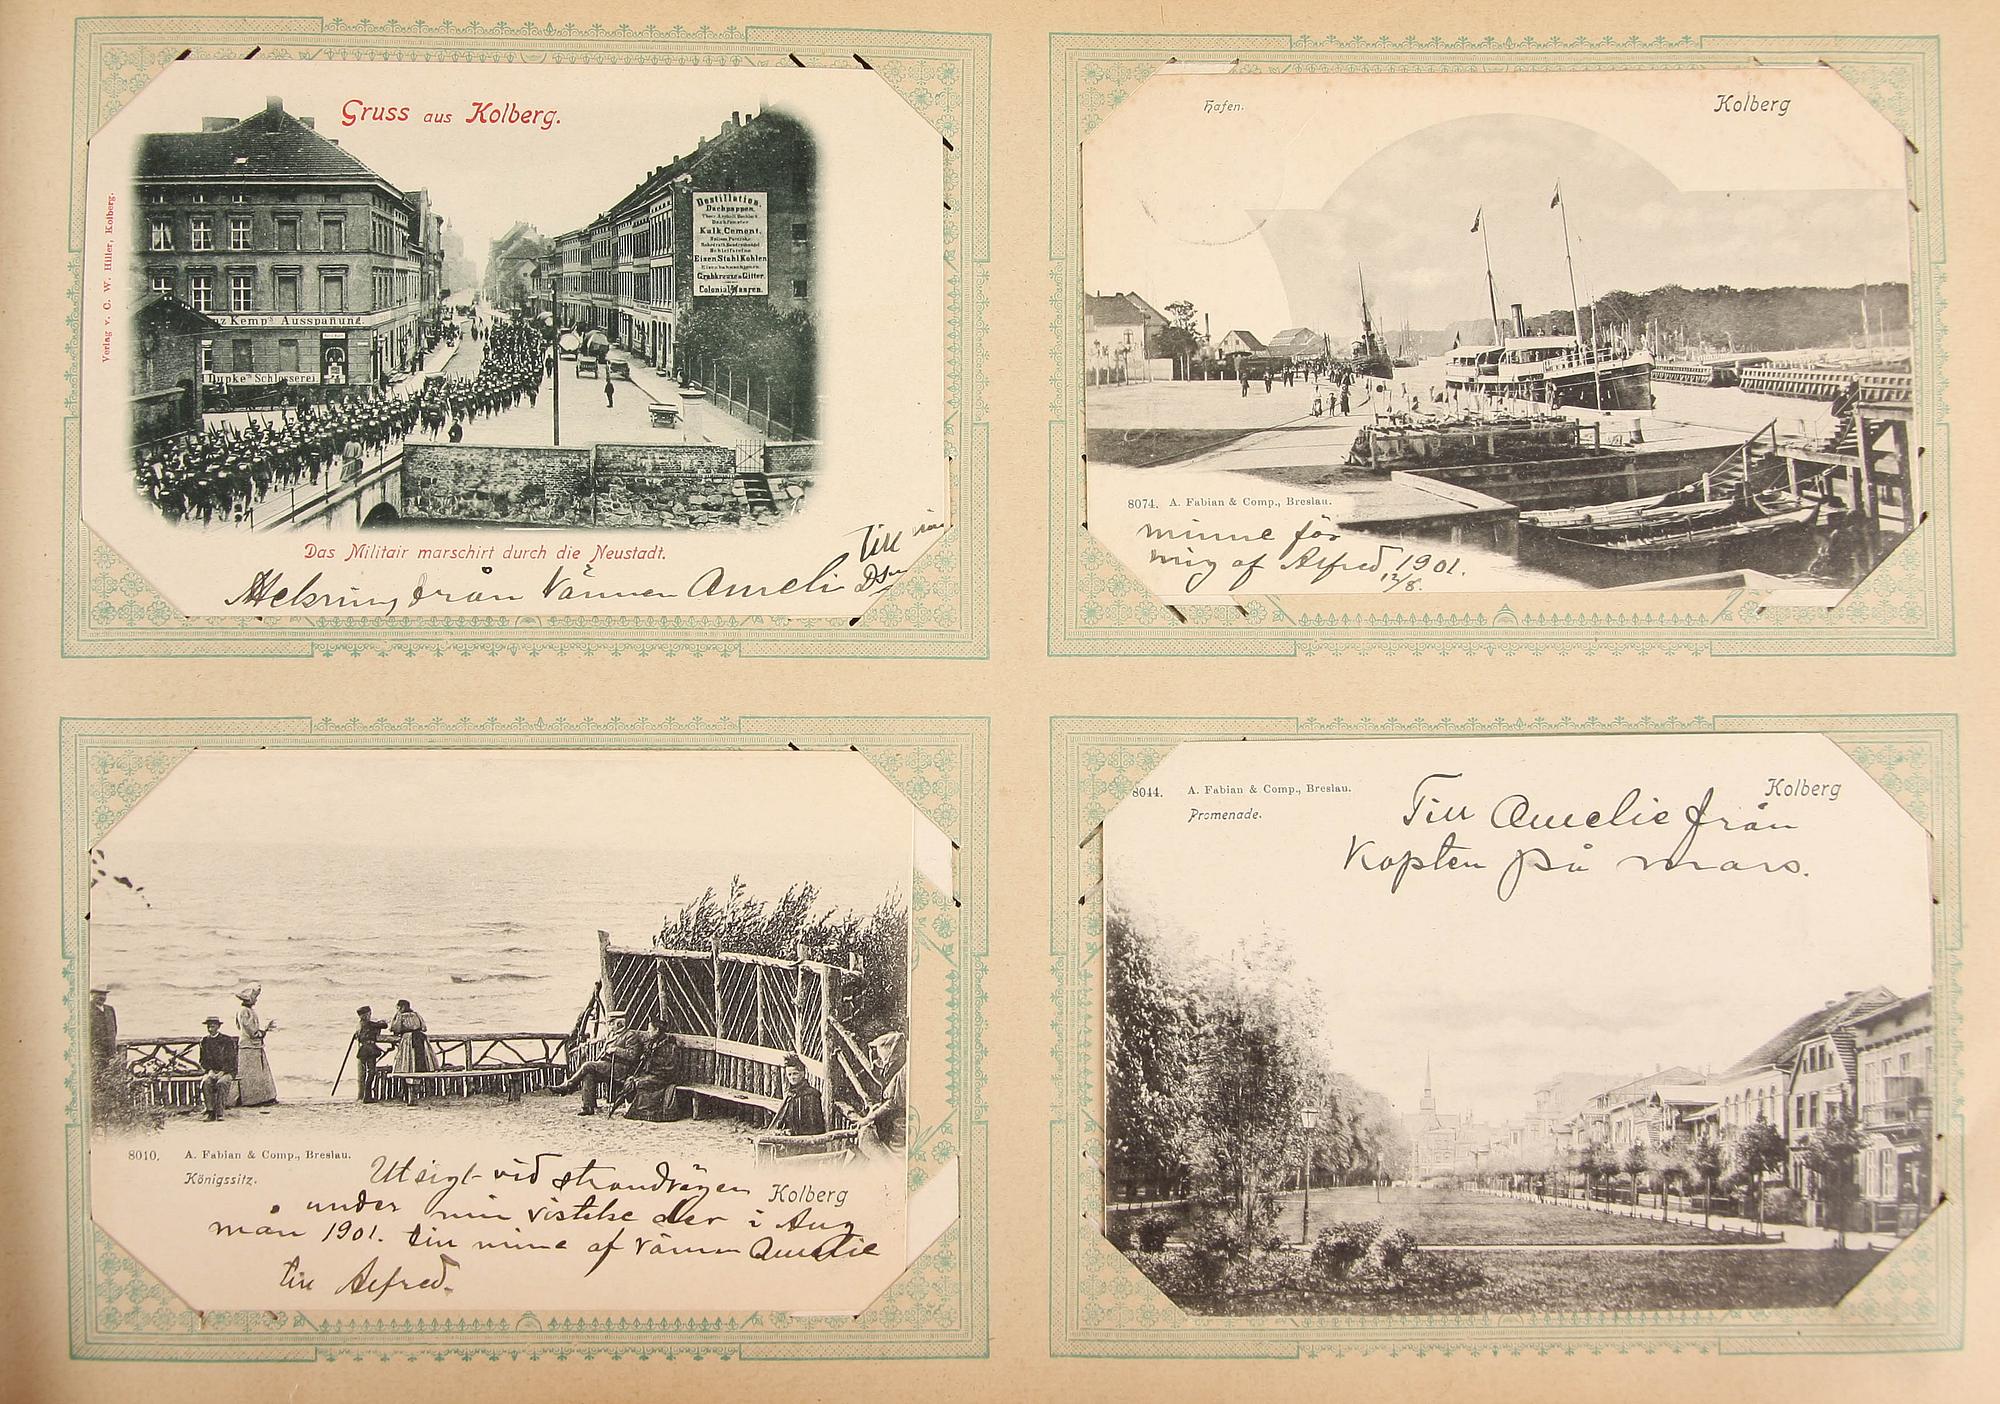 Gruss aus Kolberg.
Verlag v. C. W. Hiller, Kolberg.
Destillation.
Dachpappen.
Kalk, Cement.
Eisen Stahl Kohlen
Grabkreuze u. Gitter.
Colonial Waaren.
Kemp's Ausspanung.
Dupke's Schlosserei.
Das Militair marschirt durch die Neustadt.
från Vännen Ameli
Till
Hafen.
Kolberg
8074. A. Fabian & Comp., Breslau.
minne för
mig af Alfred 1901.
12/8.
8010. A. Fabian & Comp., Breslau.
Königssitz.
Kolberg
Utsigt vid strandvägen
under min vistelse der i Aug
mån 1901. till minne af vännen Amelie
till Alfred.
8044. A. Fabian & Comp., Breslau.
Promenade.
Kolberg
Till Amelie från
Kapten på mars.